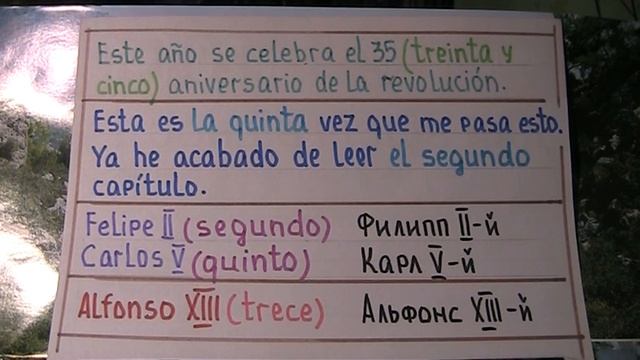 Este año se celebra el 35 (treinta y
cinco) aniversario de la revolución.
Esta es la quinta vez que me pasa esto.
Ya he acabado de leer el segundo
capítulo.
Felipe II (segundo) Филипп II-й
Carlos V (quinto) Карл V-й
Alfonso XIII (trece) Альфонс XIII-й